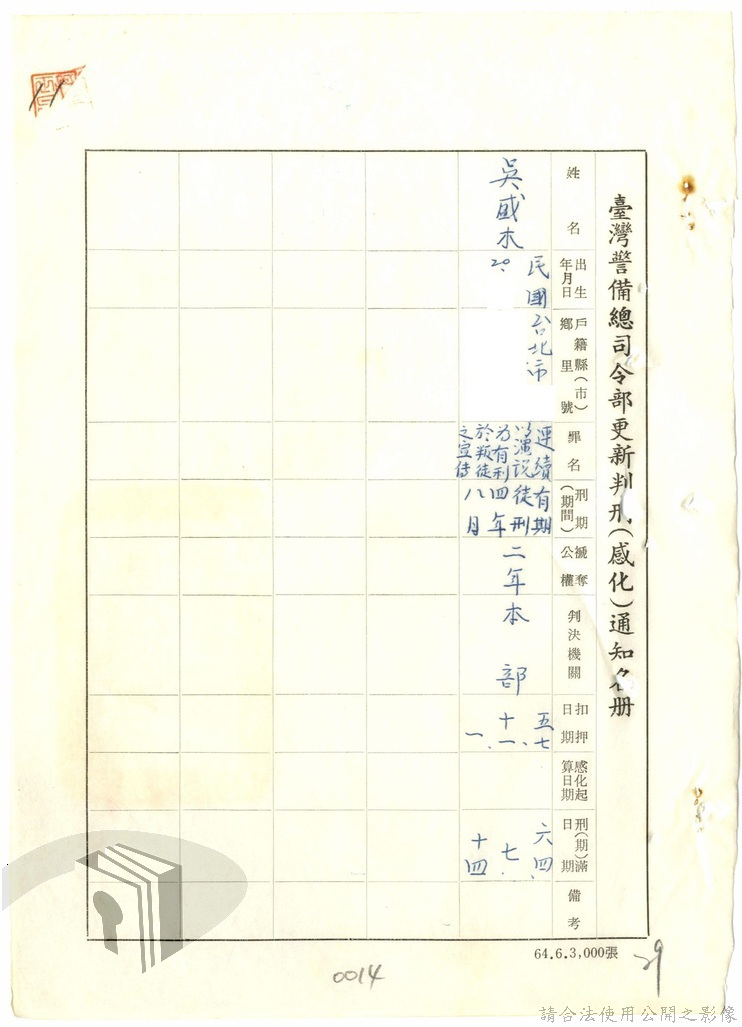 臺灣警備總司令部更新判刑(感化)通知名册
姓名
出生年月日
戶籍縣(市)鄉里號
罪名
刑期(期間)
褫奪公權
判決機關
扣押日期
感化起算日期
刑(期)滿日期
備考
吳 木
民國
20.
台北市
連續
以演說
為有利
於叛徒
之宣傳
有期
徒刑
四年
八月
二年
本部
五七、
十一、
一
六四、
七.
十四
64.6.3,000張
29
0014
請合法使用公開之影像